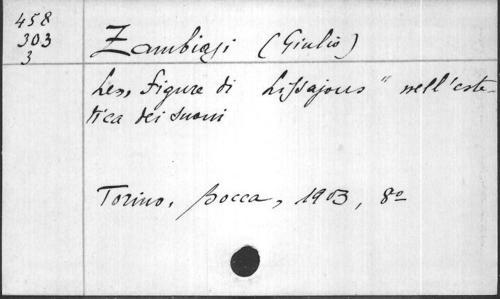 458
303
3
Zambiasi (Giulio)
Le „ figure di Lissajous " nell'este-
tica dei suoni
Torino, Bocca, 1903, 8º